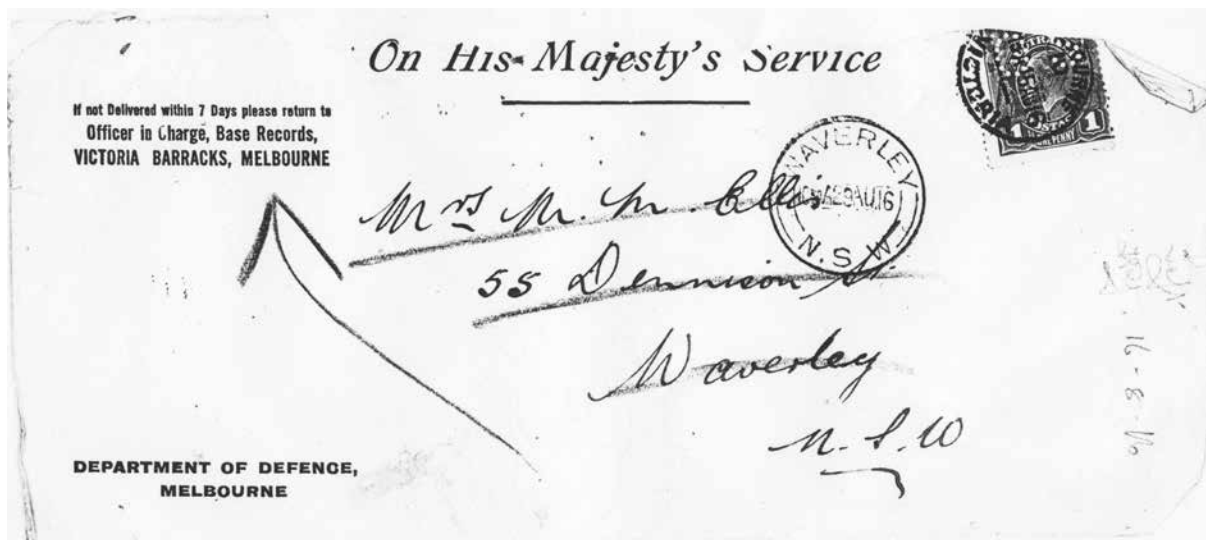 On His Majesty's Service
If not Delivered within 7 Days please return to
Officer in Charge, Base Records,
VICTORIA BARRACKS, MELBOURNE
WAVERLEY
29AU16
N.S.W
1 ONE PENNY 1
Mrs M. M. Ellis
55 Dennison St.
Waverley
N. S. W
16-8-16
DEPARTMENT OF DEFENCE,
MELBOURNE